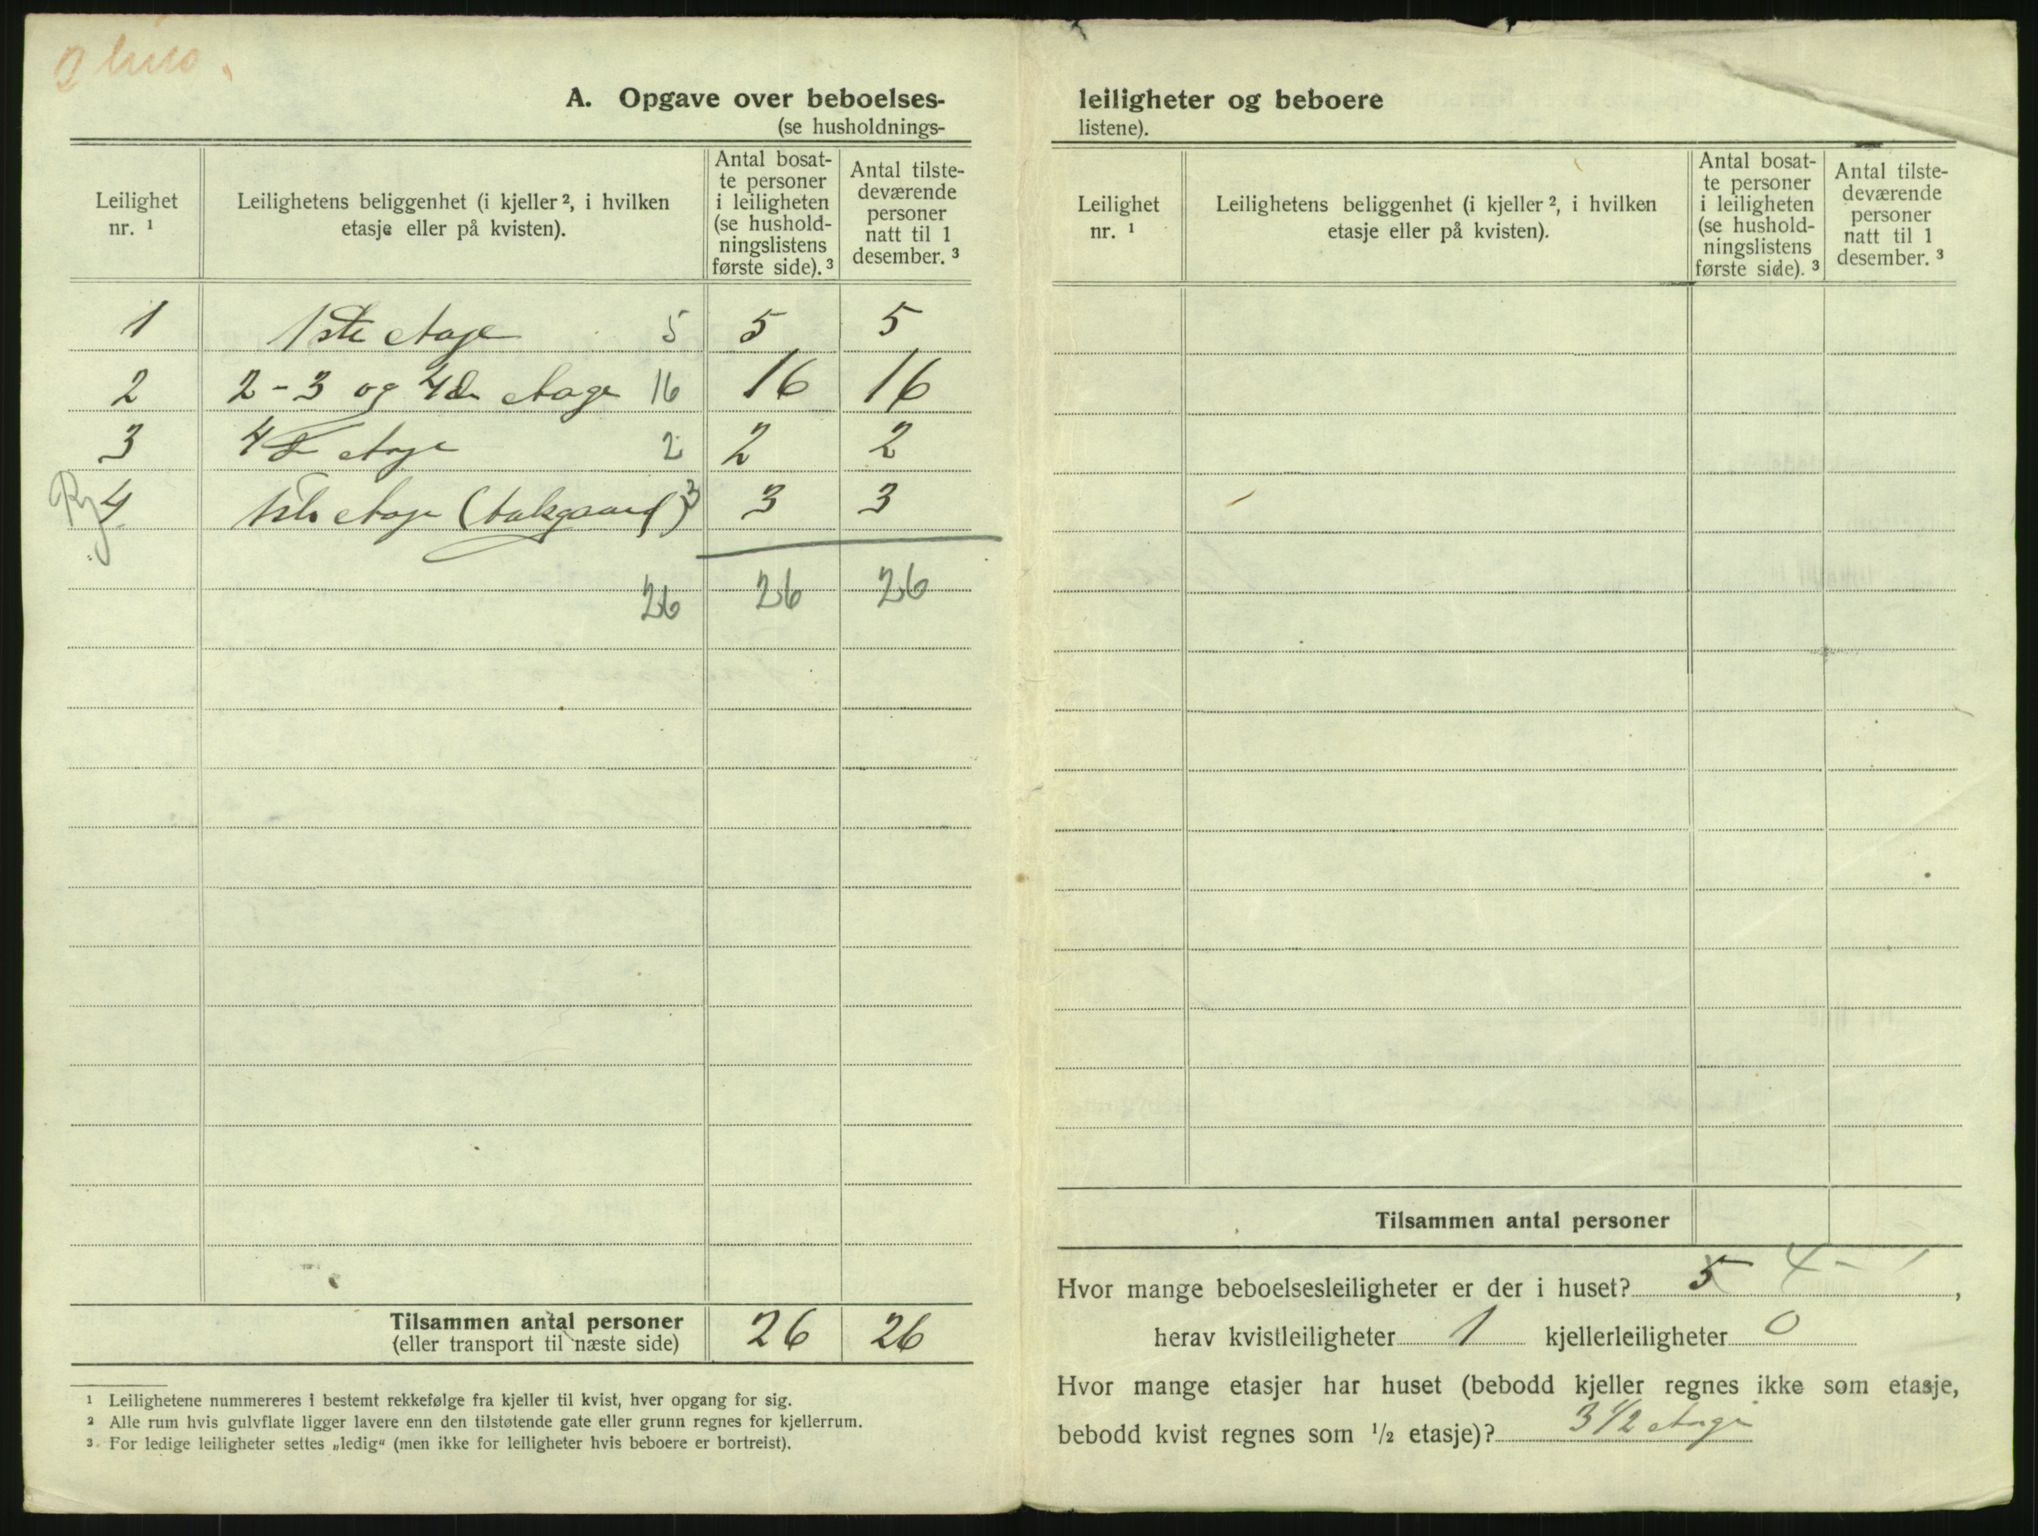 A. Opgave over beboelses-
(se husholdnings-
Leilighet nr. ¹
Leilighetens beliggenhet (i kjeller ², i hvilken etasje eller på kvisten).
Antal bosatte personer i leiligheten (se husholdningslistens første side). ³
Antal tilstedeværende personer natt til 1 desember. ³
1 1ste etage 5 5 5
2 2-3 og 4de etage 16 16 16
3 4de etage 2 2 2
4 1ste etage (bakgaard) 3 3 3
26 26 26
Tilsammen antal personer 26 26
(eller transport til næste side)
¹ Leilighetene nummereres i bestemt rekkefølge fra kjeller til kvist, hver opgang for sig.
² Alle rum hvis gulvflate ligger lavere enn den tilstøtende gate eller grunn regnes for kjellerrum.
³ For ledige leiligheter settes „ledig“ (men ikke for leiligheter hvis beboere er bortreist).
leiligheter og beboere
listene).
Leilighet nr. ¹
Leilighetens beliggenhet (i kjeller ², i hvilken etasje eller på kvisten).
Antal bosatte personer i leiligheten (se husholdningslistens første side). ³
Antal tilstedeværende personer natt til 1 desember. ³
Tilsammen antal personer
Hvor mange beboelsesleiligheter er der i huset? 5 4 - 1,
herav kvistleiligheter 1 kjellerleiligheter 0
Hvor mange etasjer har huset (bebodd kjeller regnes ikke som etasje,
bebodd kvist regnes som ½ etasje)? 3 1/2 etage